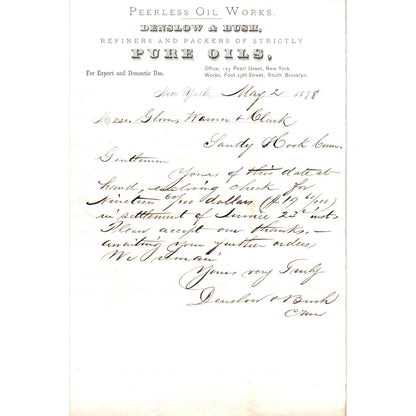 PEERLESS OIL WORKS.
DENSLOW & BUSH,
REFINERS AND PACKERS OF STRICTLY
PURE OILS,
For Export and Domestic Use.
Office, 123 Pearl Street, New York
Works, Foot 25th Street, South Brooklyn.
New York, May 2 1878
Mess Glover Warner & Clark
Sandy Hook Conn
Gentlemen
Yours of this date at
hand, enclosing check for
Nineteen 60/100 dollars ($19 60/100)
in settlement of Invoice 23d inst
Please accept our thanks.—
awaiting your further orders
We remain
Yours very Truly
Denslow & Bush